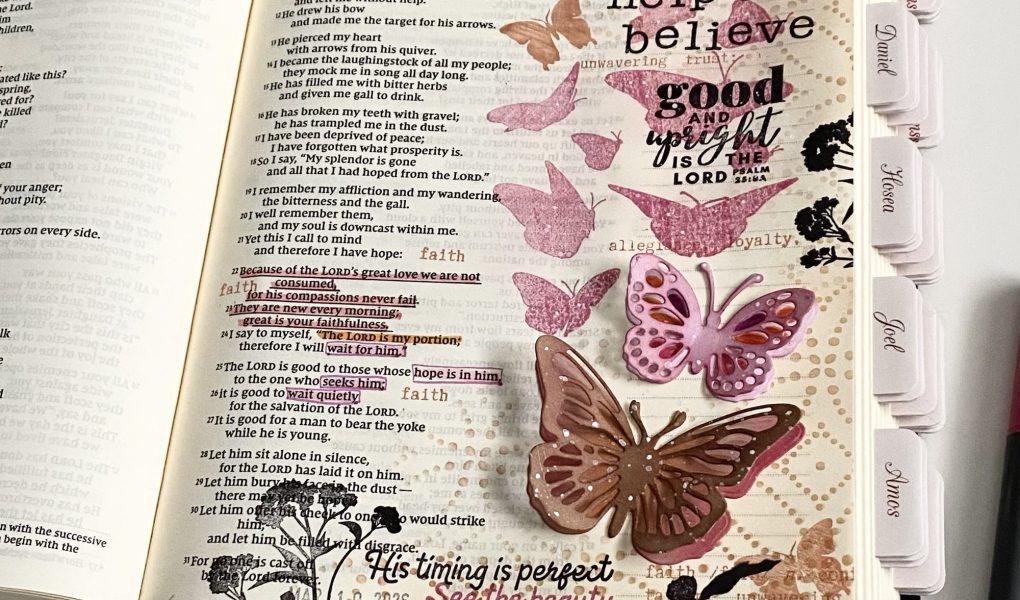 the Lord.
him
children,
ated like this?
spring,
ed for?
killed
d?
en
your anger;
hout pity.
rrors on every side.
lk
e
d
n with the successive
begin with the
and left me without help.
12 He drew his bow
and made me the target for his arrows.
13 He pierced my heart
with arrows from his quiver.
14 I became the laughingstock of all my people;
they mock me in song all day long.
15 He has filled me with bitter herbs
and given me gall to drink.
16 He has broken my teeth with gravel;
he has trampled me in the dust.
17 I have been deprived of peace;
I have forgotten what prosperity is.
18 So I say, “My splendor is gone
and all that I had hoped from the LORD.”
19 I remember my affliction and my wandering,
the bitterness and the gall.
20 I well remember them,
and my soul is downcast within me.
21 Yet this I call to mind
and therefore I have hope:
faith
22 Because of the LORD’s great love we are not
consumed,
faith
for his compassions never fail.
23 They are new every morning;
great is your faithfulness.
24 I say to myself, “The LORD is my portion;
therefore I will wait for him.”
25 The LORD is good to those whose hope is in him,
to the one who seeks him;
26 it is good to wait quietly
faith
for the salvation of the LORD.
27 It is good for a man to bear the yoke
while he is young.
28 Let him sit alone in silence,
for the LORD has laid it on him.
29 Let him bury his face in the dust—
there may yet be hope.
30 Let him offer his cheek to one who would strike
him,
and let him be filled with disgrace.
31 For no one is cast off
by the Lord forever.
help
believe
unwavering trust:
good
AND
upright
IS THE
LORD PSALM
25:8A
allegiance, loyalty,
His timing is perfect
See the beauty
faith
unwavering
Daniel
Hosea
Joel
Amos